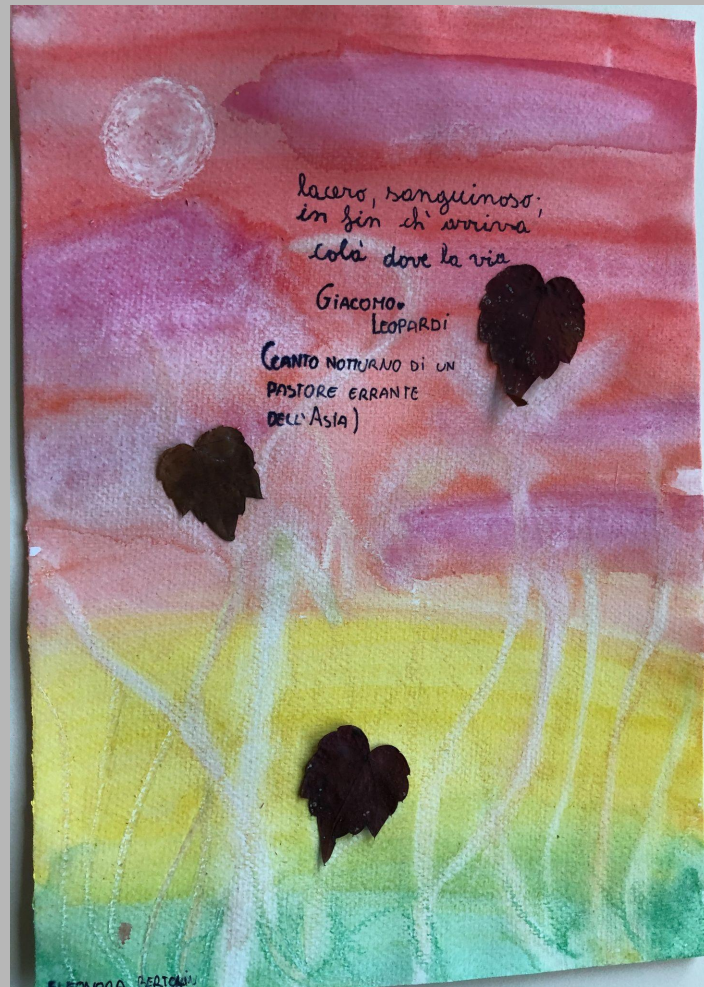 lacero, sanguinoso;
in fin ch' arriva
colà dove la via
GIACOMO
LEOPARDI
(CANTO NOTTURNO DI UN
PASTORE ERRANTE
DELL'ASIA)
ELEONORA BERTONI